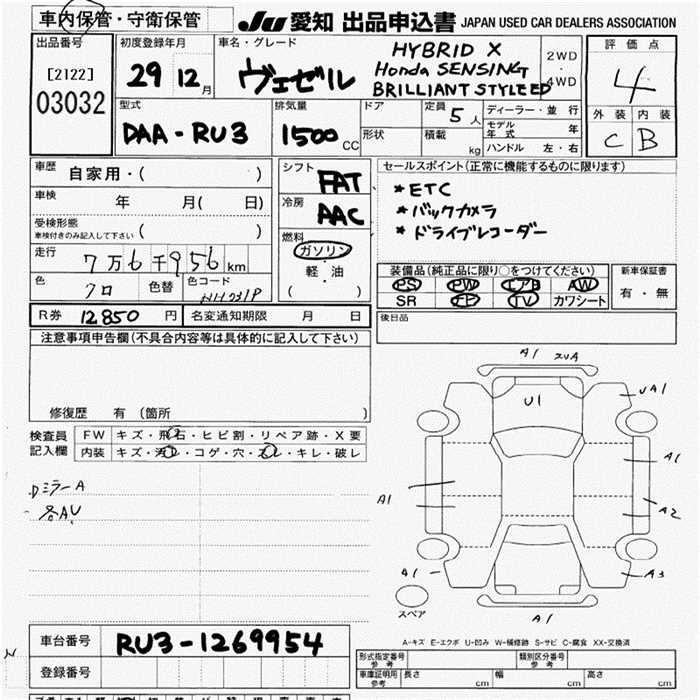 車内保管・守衛保管
JU 愛知 出品申込書 JAPAN USED CAR DEALERS ASSOCIATION
出品番号
[2122]
03032
初度登録年月
29 12月
車名・グレード
ヴェゼル
HYBRID X
Honda SENSING
BRILLIANT STYLE ED
2WD
4WD
評価点
4
外装 内装
C B
型式
DAA-RU3
排気量
1500 CC
ドア
形状
定員 5 人
積載 kg
ディーラー・並 行
モデル年式 年
ハンドル 左・右
車歴 自家用・( )
車検 年 月( 日)
受検形態
車検付きのみ記入して下さい ( )
走行 7万6千956 km
色 クロ 色替 色コード
シフト FAT
冷房 AAC
燃料
ガソリン
軽・油
( )
セールスポイント(正常に機能するものに限ります)
*ETC
*バックカメラ
*ドライブレコーダー
装備品(純正品に限り○をつけてください)
PS PW エアB AW
SR EP TV カワシート
新車保証書
有・無
R券 12850 円 名変通知期限 月 日
後日品
注意事項申告欄(不具合内容等は具体的に記入して下さい)
修復歴 有 (箇所 )
検査員記入欄
FW キズ・飛石・ヒビ割・リペア跡・X要
内装 キズ・汚れ・コゲ・穴・スレ・キレ・破レ
DミラーA
各AU
A1
U1
A1
A1
A2
A1
A3
A1
スペア
A-キズ E-エクボ U-凹み W-補修跡 S-サビ C-腐食 XX-交換済
車台番号 RU3-1269954
登録番号
形式指定番号 参考
類別区分番号 参考
車庫証明用 参考 長さ cm 幅 cm 高さ cm